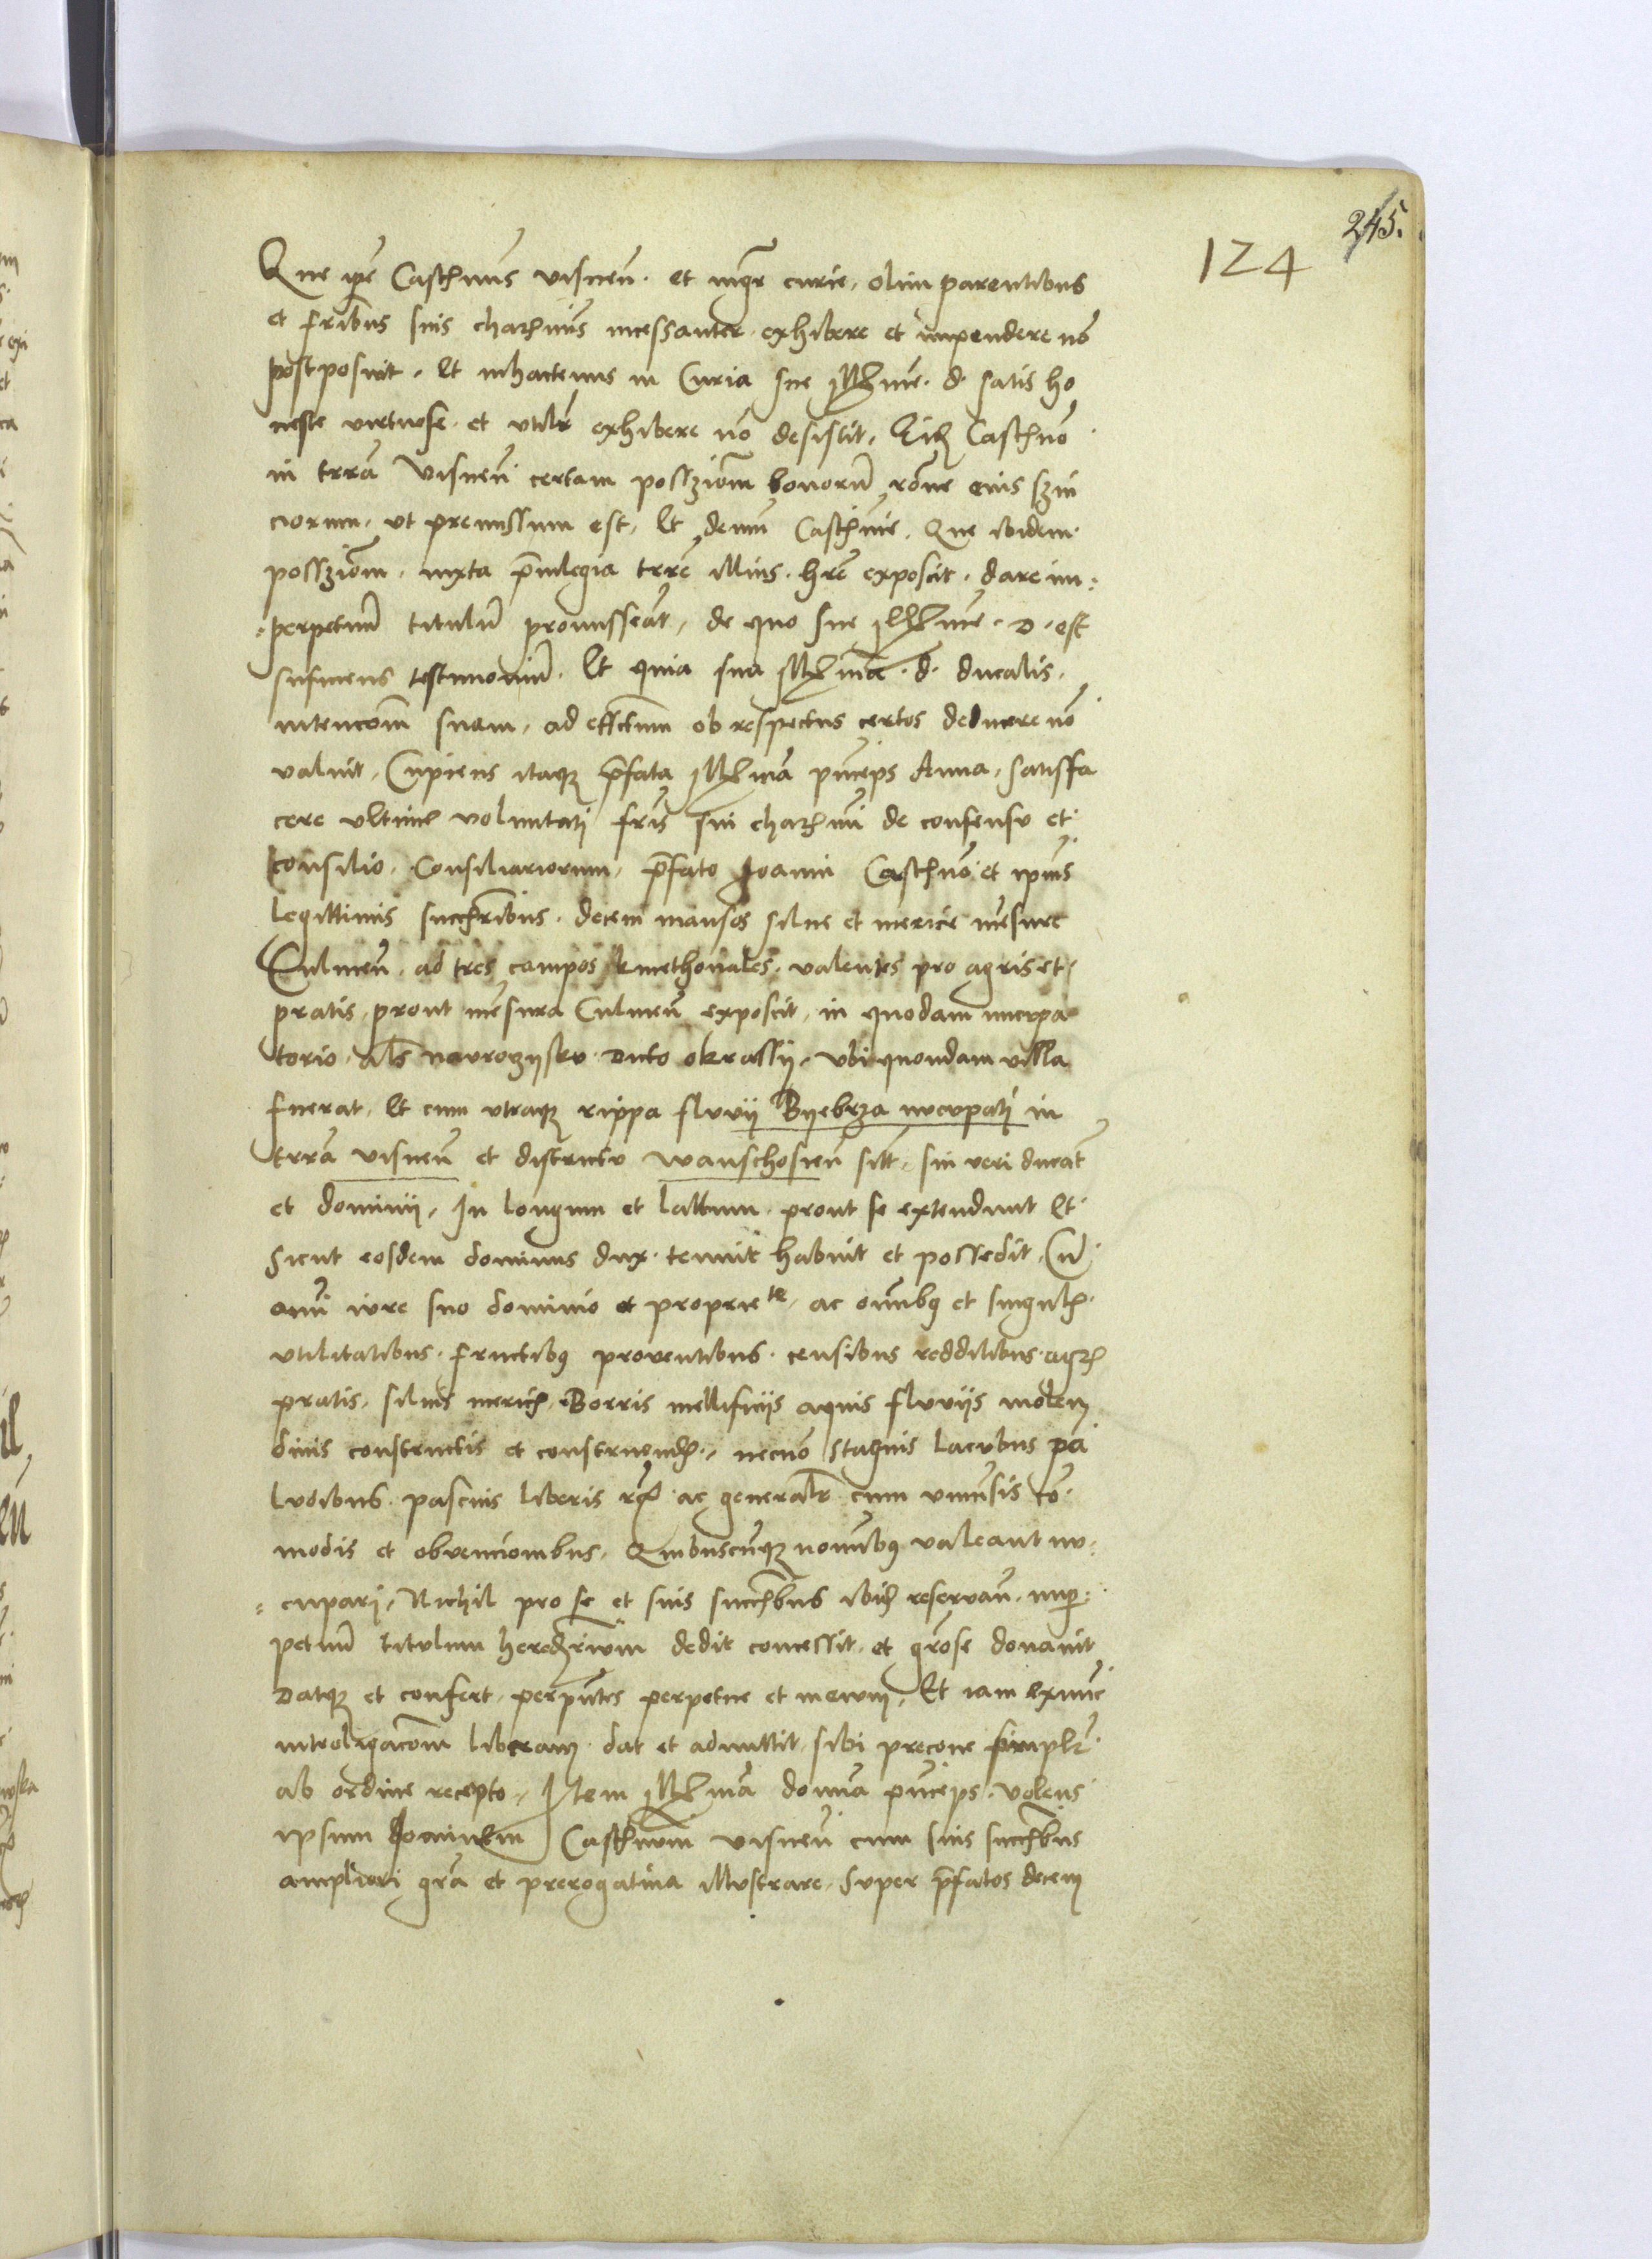 245.
124
Que ipse Castellanus visnen. et mgr curie, olim parentibus
et fribus suis charimis incessanter exhibere et impendere no
postposuit. Et inhactenus in Curia sue Illme. d. satis ho
neste virtuose et vtilr exhibere no desistit, Castlno
in trra Visnen certam possziom bonoru rone eius
ciorum, vt premissum est, Et demu Castlnie, Que ibidem
possziom, iuxta privilegia trre illius hre exposcit, dare im:
:perpetuu titulu promisserat, de quo sue Illme. D. est
sufficiens testimoniu. Et quia sua Illma. d. ducalis.
intencom suam, ad effctum ob respectus certos deducere no
valuit, Cupiens itaqz pfata Illma pnceps Anna, satisfa
cere vltime voluntatj fris sui charmi de consensu et
consilio Consiliariorum, pfato Joanni Castlno et ipius
legittimis succribus. decem mansos silue et merice mesure
Culmen. ad tres campos kmethonales. valentes pro agris et
pratis, prout mesura Culmen exposcit, in quodam nuncupa
torio als navrozysku dicto okrassij, vbi quondam villa
fuerat, Et cum vtraqz rippa fluvij Byebrza nucupatj in
trra visnen et districtu wanschosien sitt, sui veri ducat
et dominij, In longum et lattum prout se extendunt Et
Sicut eosdem dominus dux tenuit habuit et possedit, Cu
omi iure suo dominio et propriete, ac omibus et singulis
vtilitatibus fructibus proventibus censibus redditibus agris
pratis, siluis mericis Borris mellificijs aquis fluvijs molen
dinis constructis et construendis, necno stagnis lacubus pa
ludibus pascuis liberis ac generalr cum vniuersis co
modis et obvencionibus, Quibuscuqz nominibus valeant nu:
:cupari, Nichil pro se et suis succribus ibid reservan. imper:
petuu titulum heredrium dedit concessit et grose donavit
Datqz et confert perpntes perpetue et in evum, Et iam exnuc
introligacom liberam dat et admittit sibi precone simplr
ab ordine recepto, Item Illma domina pnceps volens
ipsum Joannem Castlnum visnen cum suis succribus
ampliori gra et prerogativa illustrare, super pfatos decem